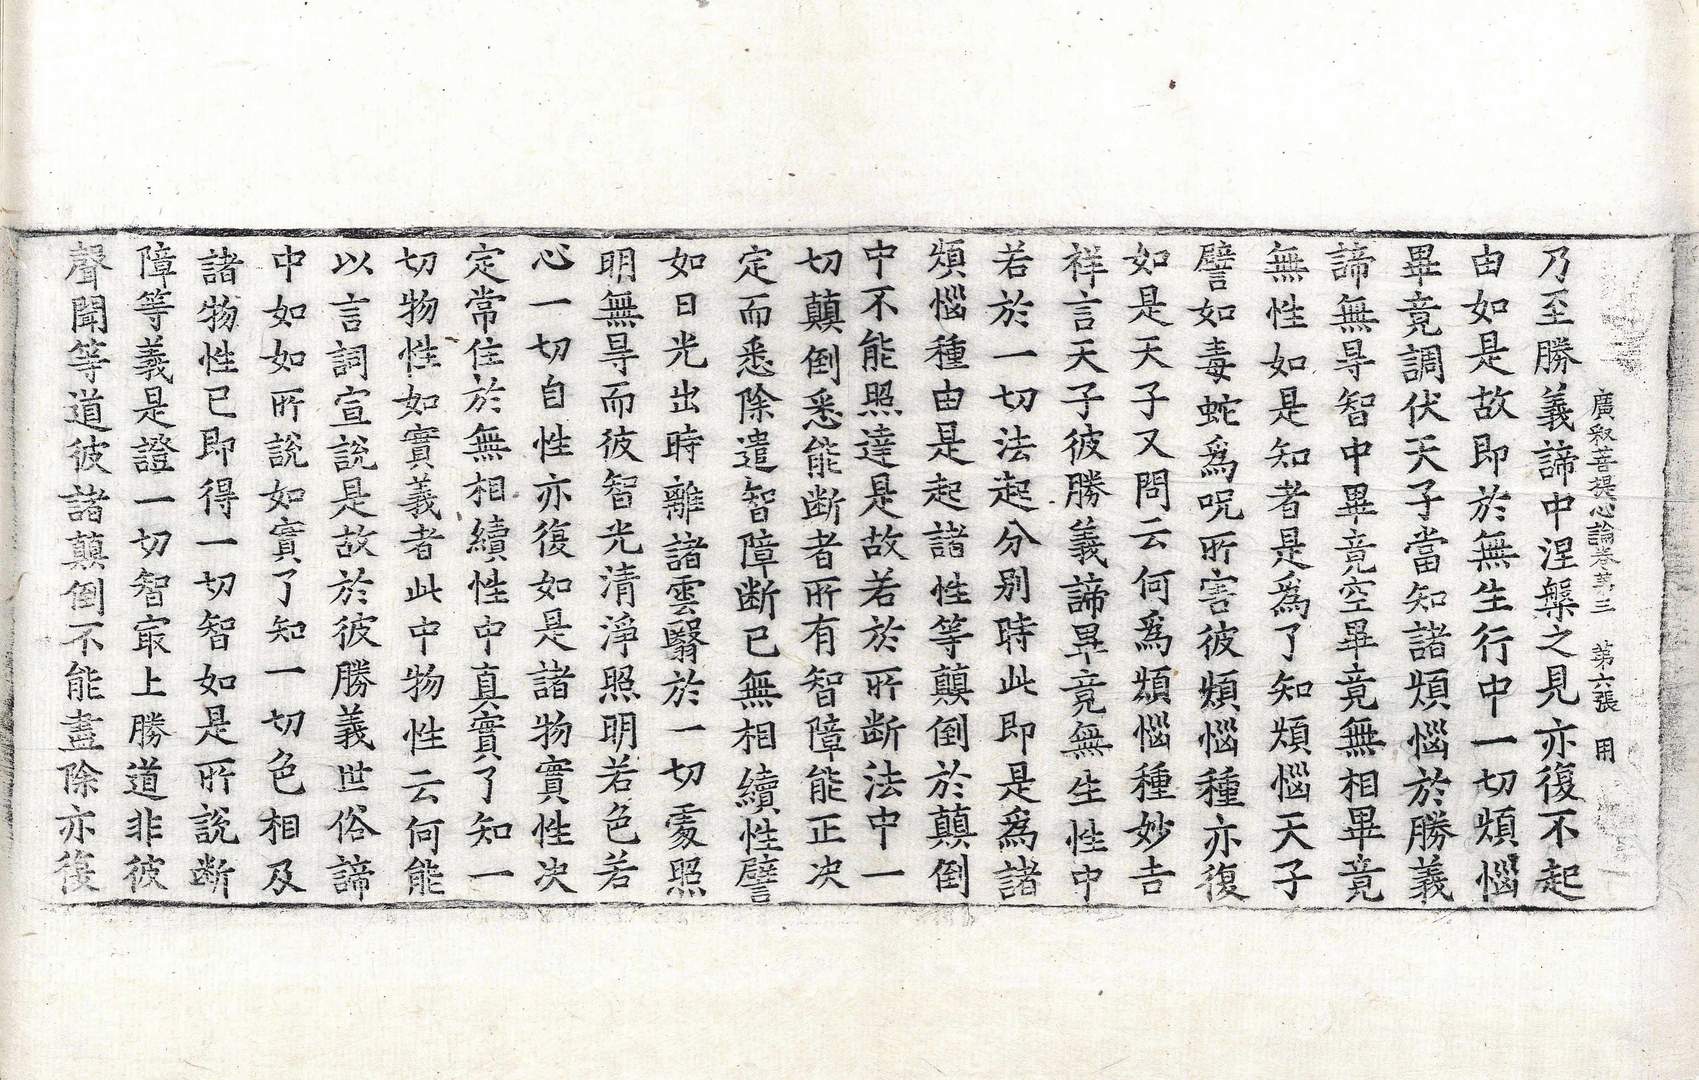 廣釋菩提心論卷第三　第六張　用
乃至勝義諦中涅槃之見亦復不起
由如是故即於無生行中一切煩惱
畢竟調伏天子當知諸煩惱於勝義
諦無㝵智中畢竟空畢竟無相畢竟
無性如是知者是爲了知煩惱天子
譬如毒蛇爲呪所害彼煩惱種亦復
如是天子又問云何爲煩惱種妙吉
祥言天子彼勝義諦畢竟無生性中
若於一切法起分別時此即是爲諸
煩惱種由是起諸性等顛倒於顛倒
中不能照達是故若於所断法中一
切顛倒悉能断者所有智障能正決
定而悉除遣智障断已無相續性譬
如日光出時離諸雲翳於一切處照
明無㝵而彼智光清淨照明若色若
心一切自性亦復如是諸物實性決
定常住於無相續性中真實了知一
切物性如實義者此中物性云何能
以言詞宣說是故於彼勝義世俗諦
中如如所說如實了知一切色相及
諸物性已即得一切智如是所說断
障等義是證一切智㝡上勝道非彼
聲聞等道彼諸顛倒不能盡除亦復